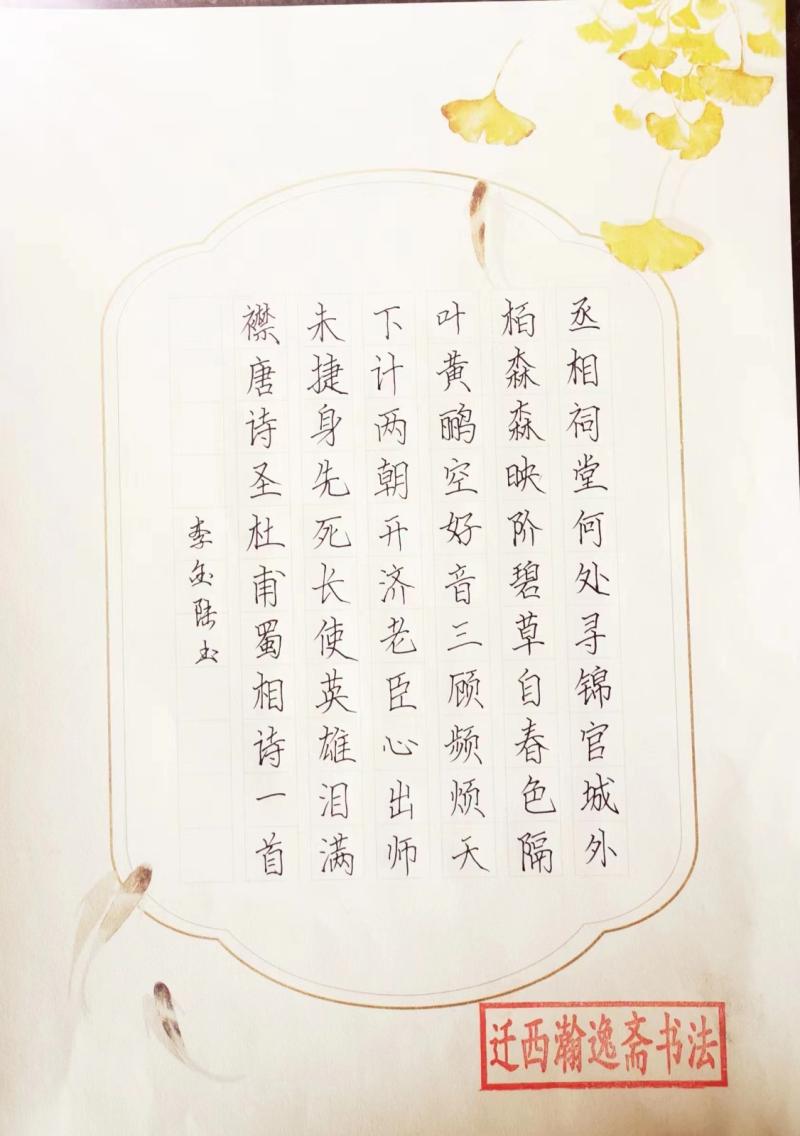 丞相祠堂何处寻锦官城外
柏森森映阶碧草自春色隔
叶黄鹂空好音三顾频烦天
下计两朝开济老臣心出师
未捷身先死长使英雄泪满
襟唐诗圣杜甫蜀相诗一首
李金陆书
迁西瀚逸斋书法